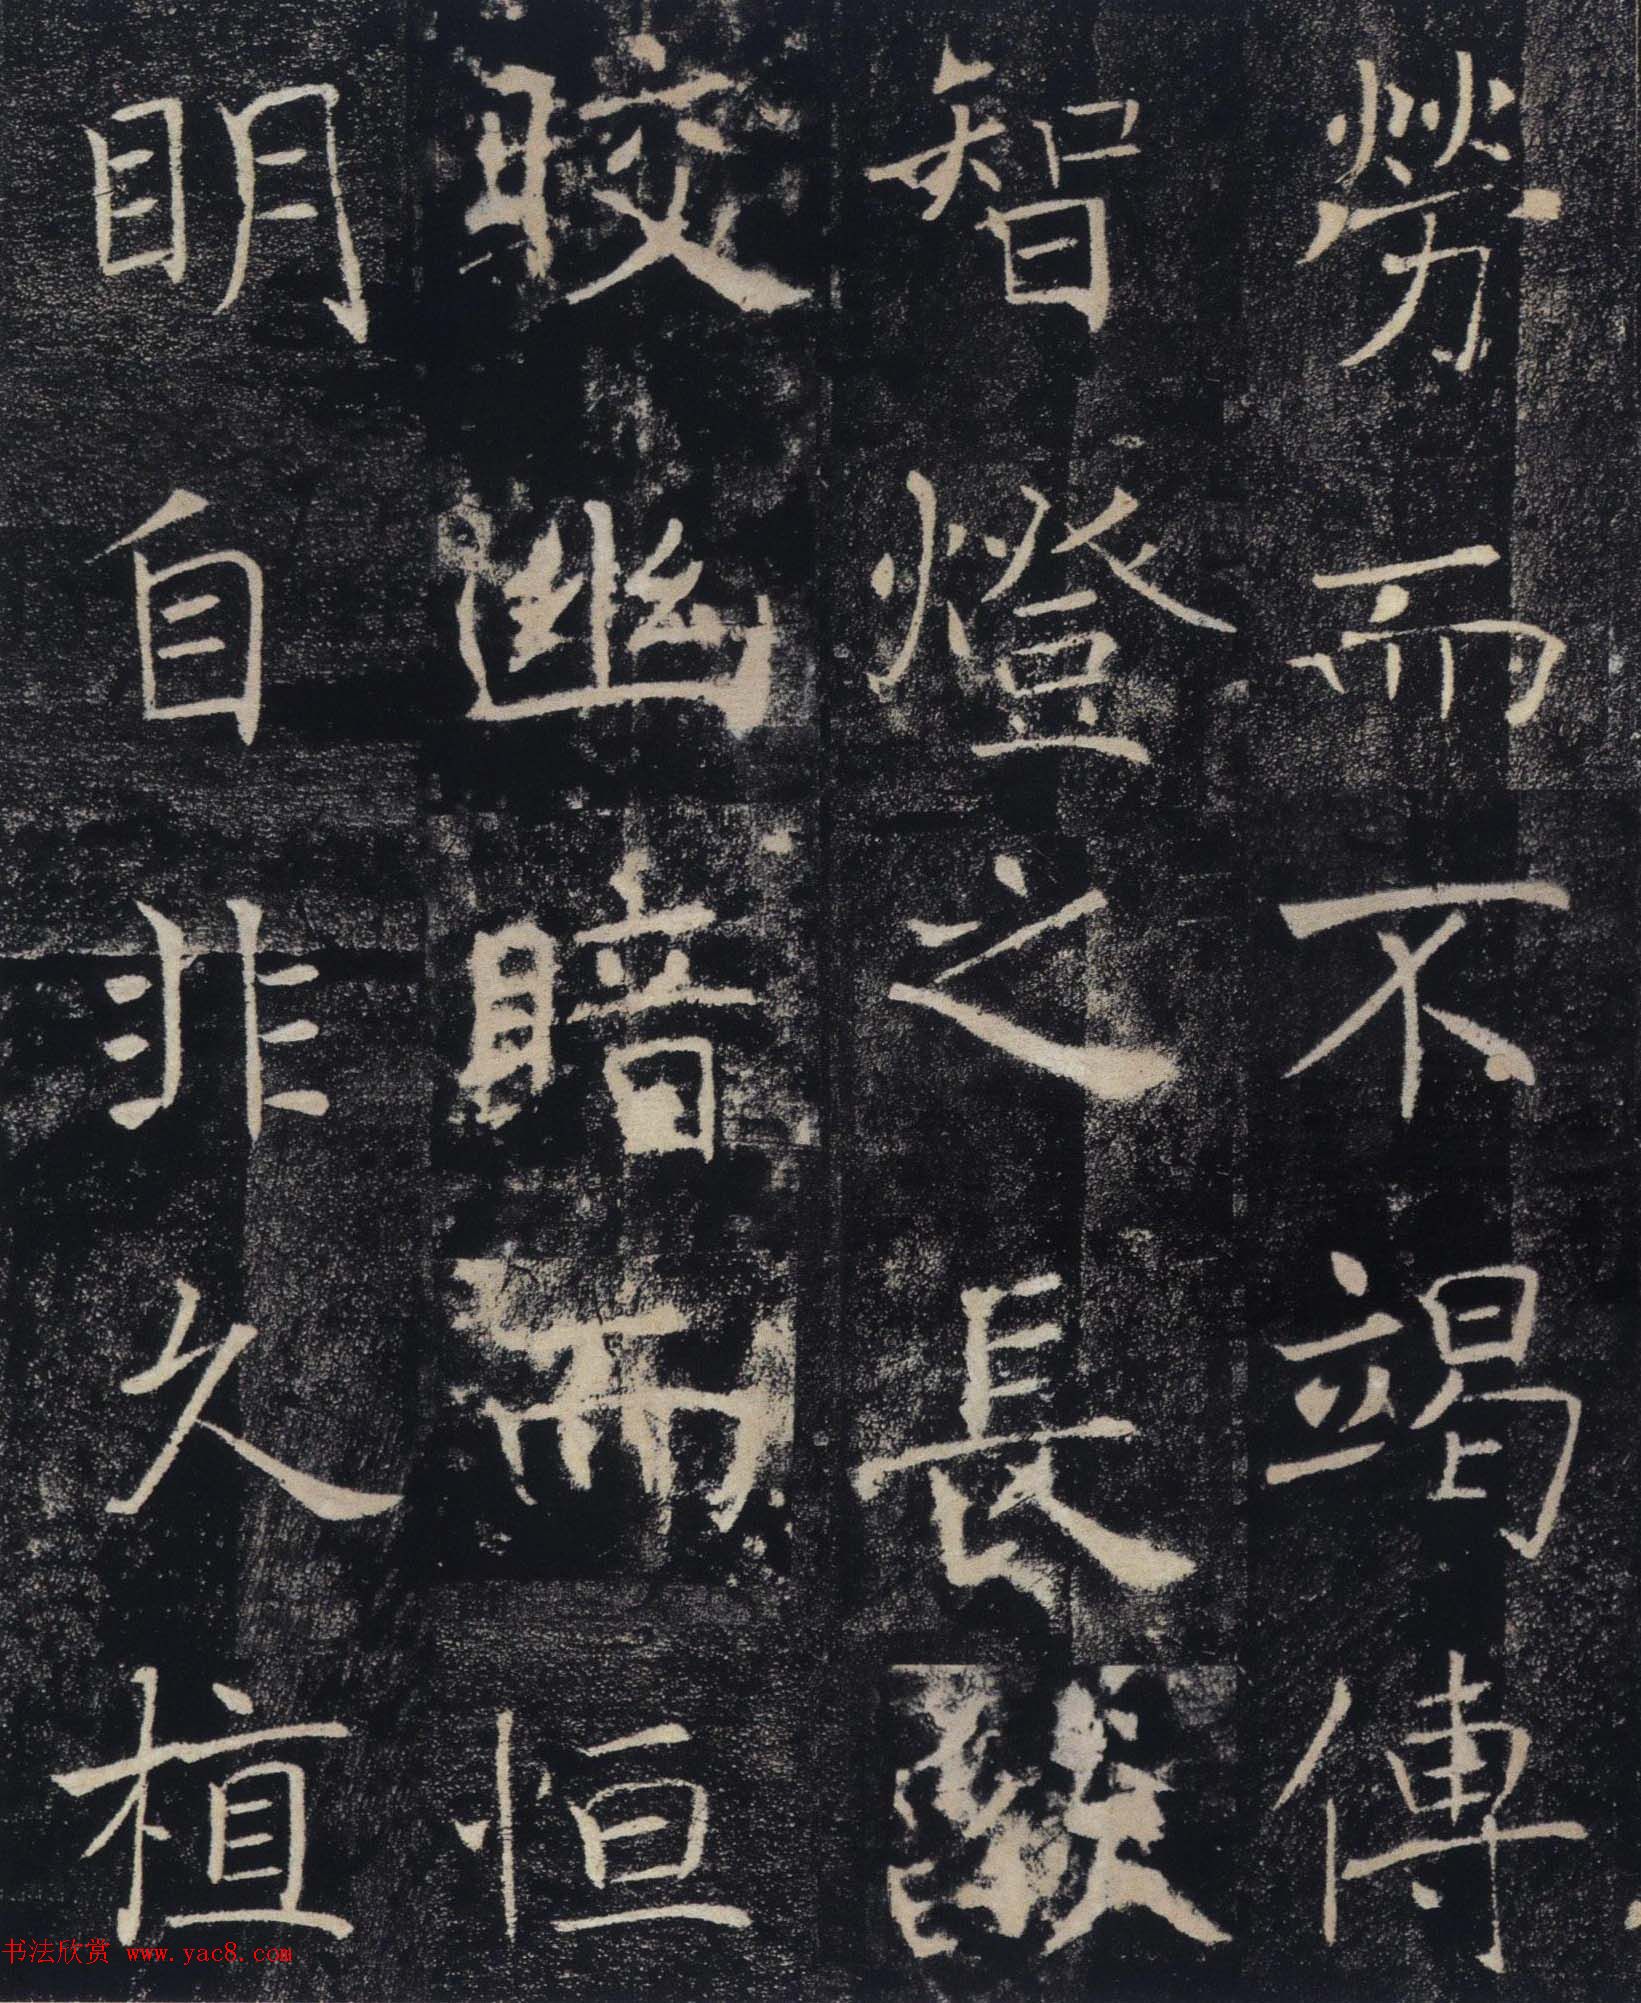 勞而不竭傳
智燈之長燄
晈幽暗而恒
明自非久植
书法欣赏 www.yac8.com